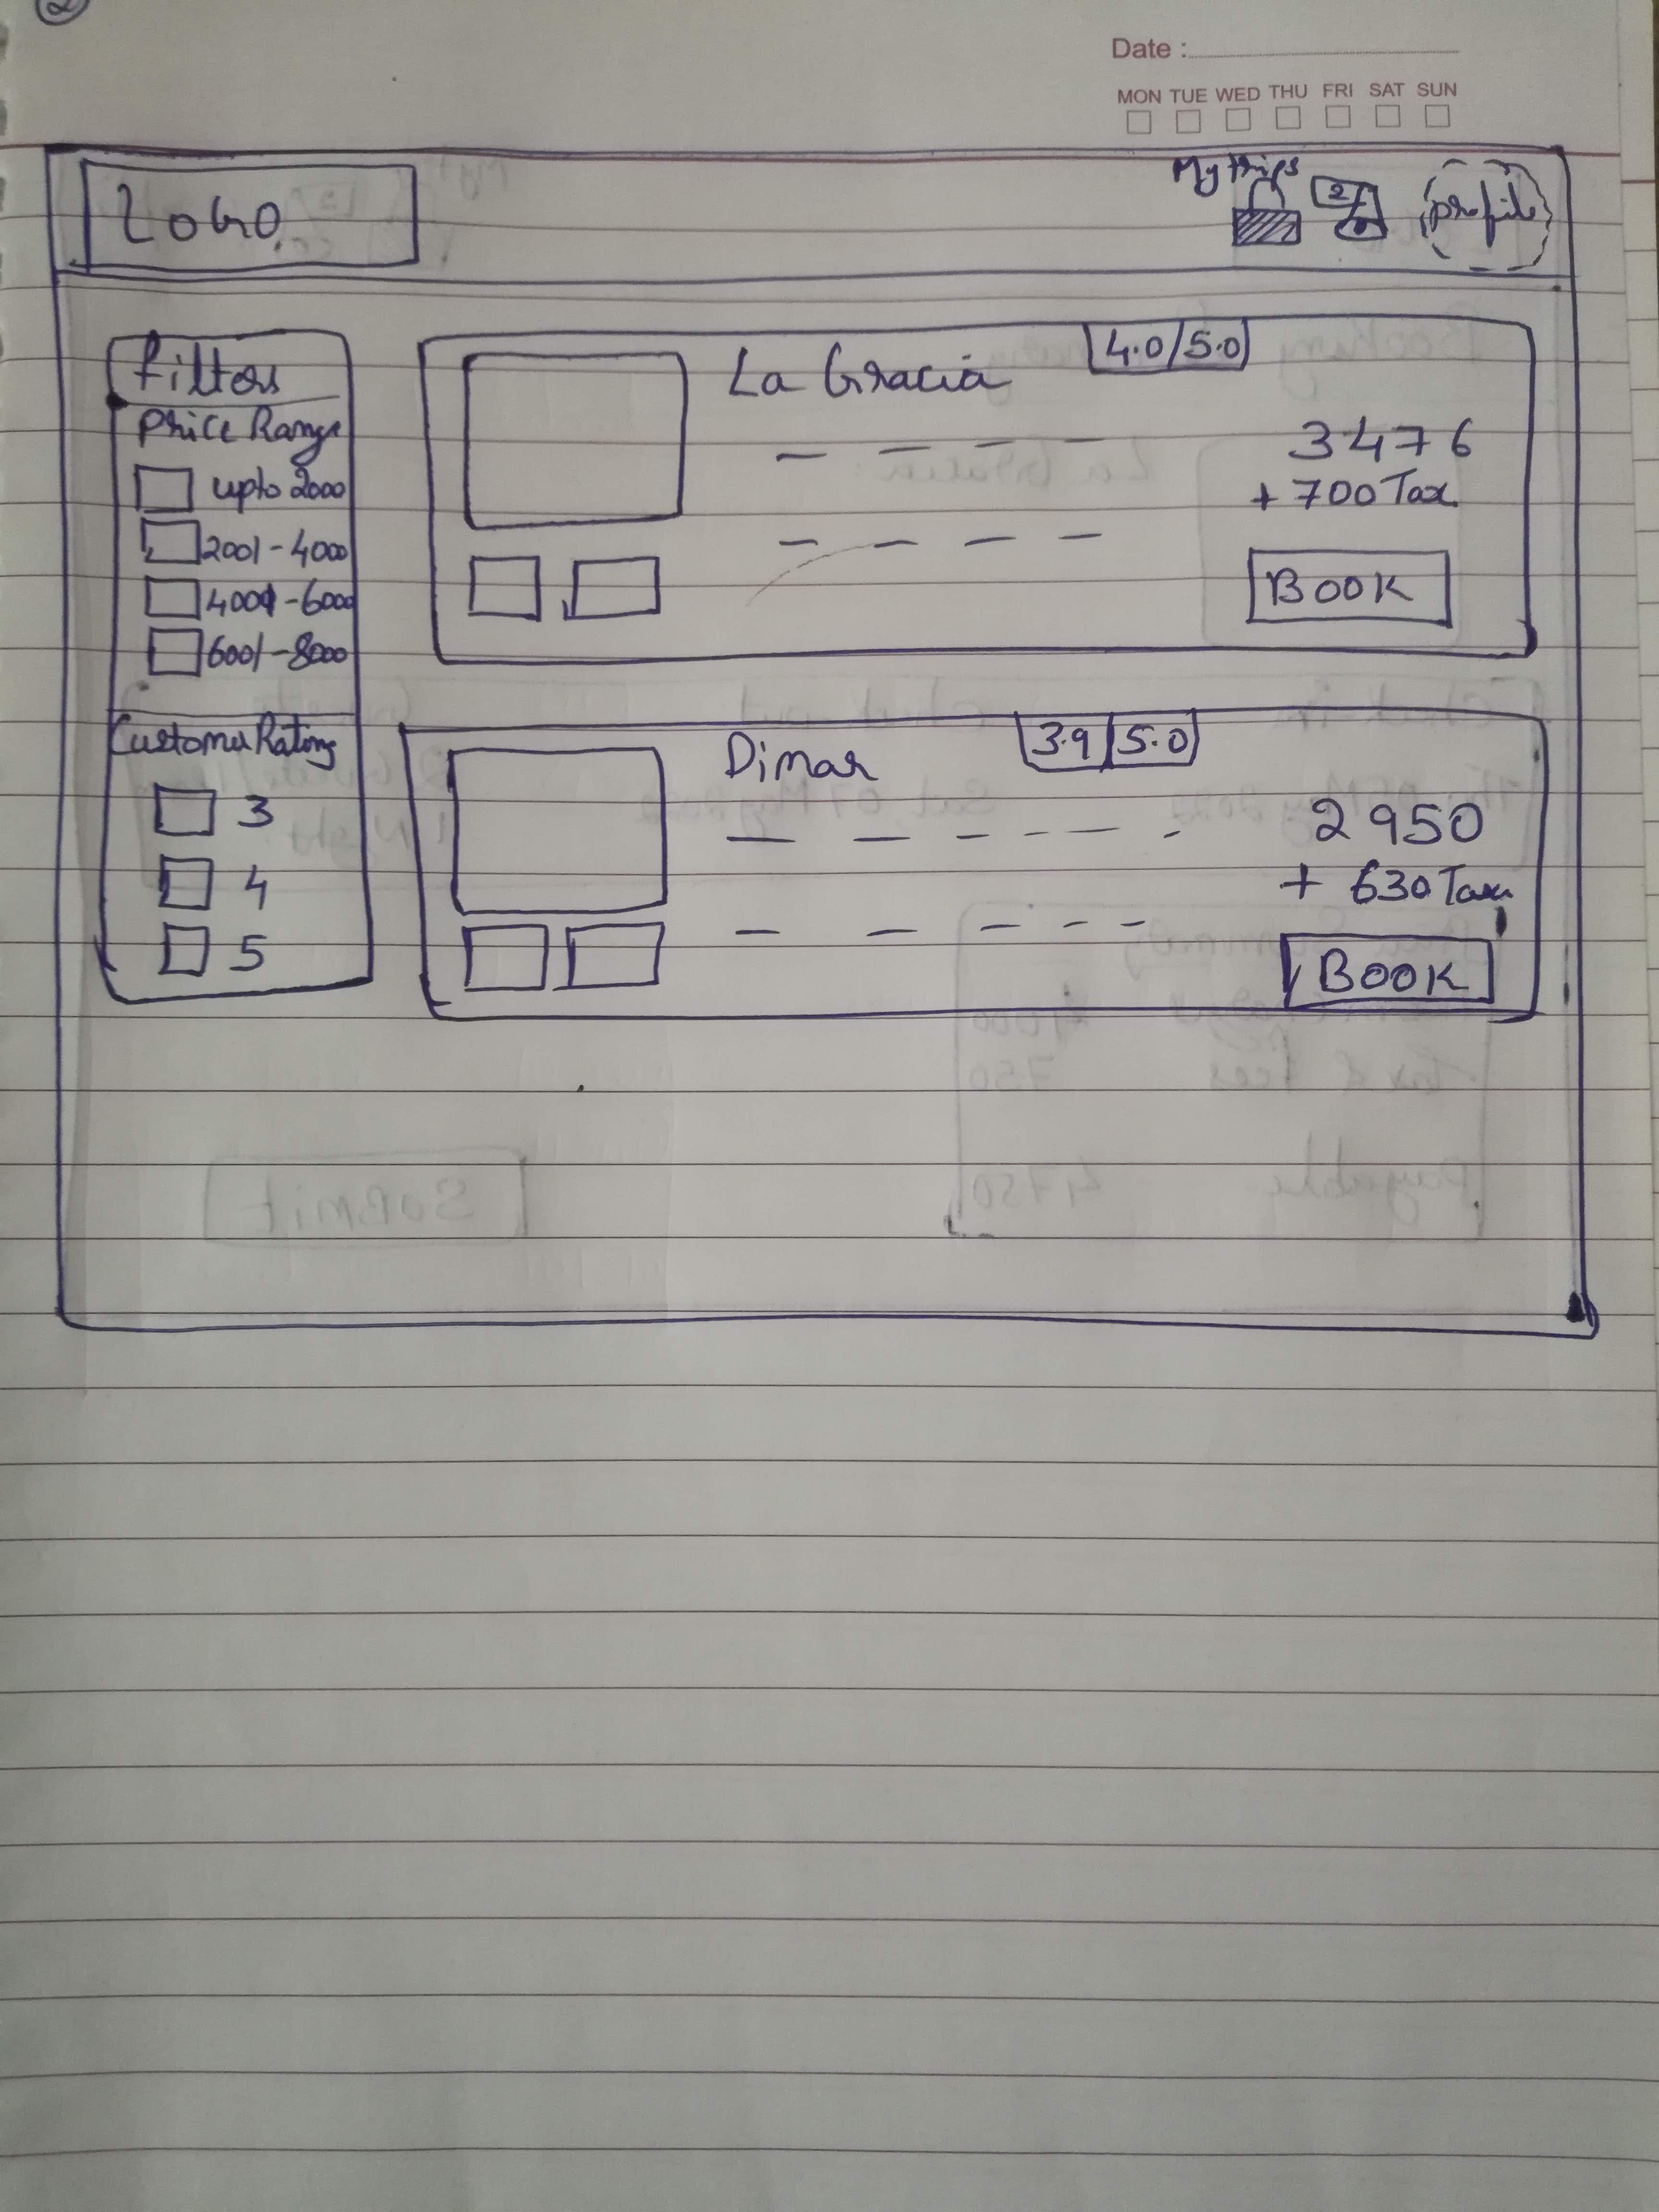 2
Date :
MON TUE WED THU FRI SAT SUN
My trips
LOGO
2
profile
Filters
Price Range
upto 2000
2001-4000
4001-6000
6001-8000
Customer Rating
3
4
5
La Gracia
4.0/5.0
3476
+ 700 Tax
BOOK
Dimar
3.9/5.0
2950
+ 630 Taxes
BOOK